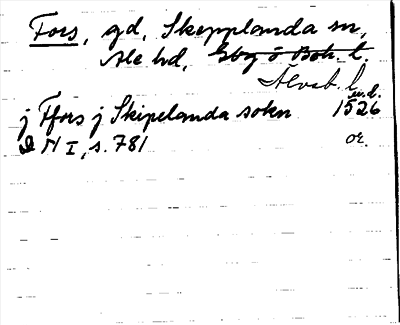 Fors, gd, Skepplanda sn,
Ale hd, Gbg o Boh. l.
Älvsb. l.
j Ffors j Skipelanda sokn 1526
N I, s. 781 or.